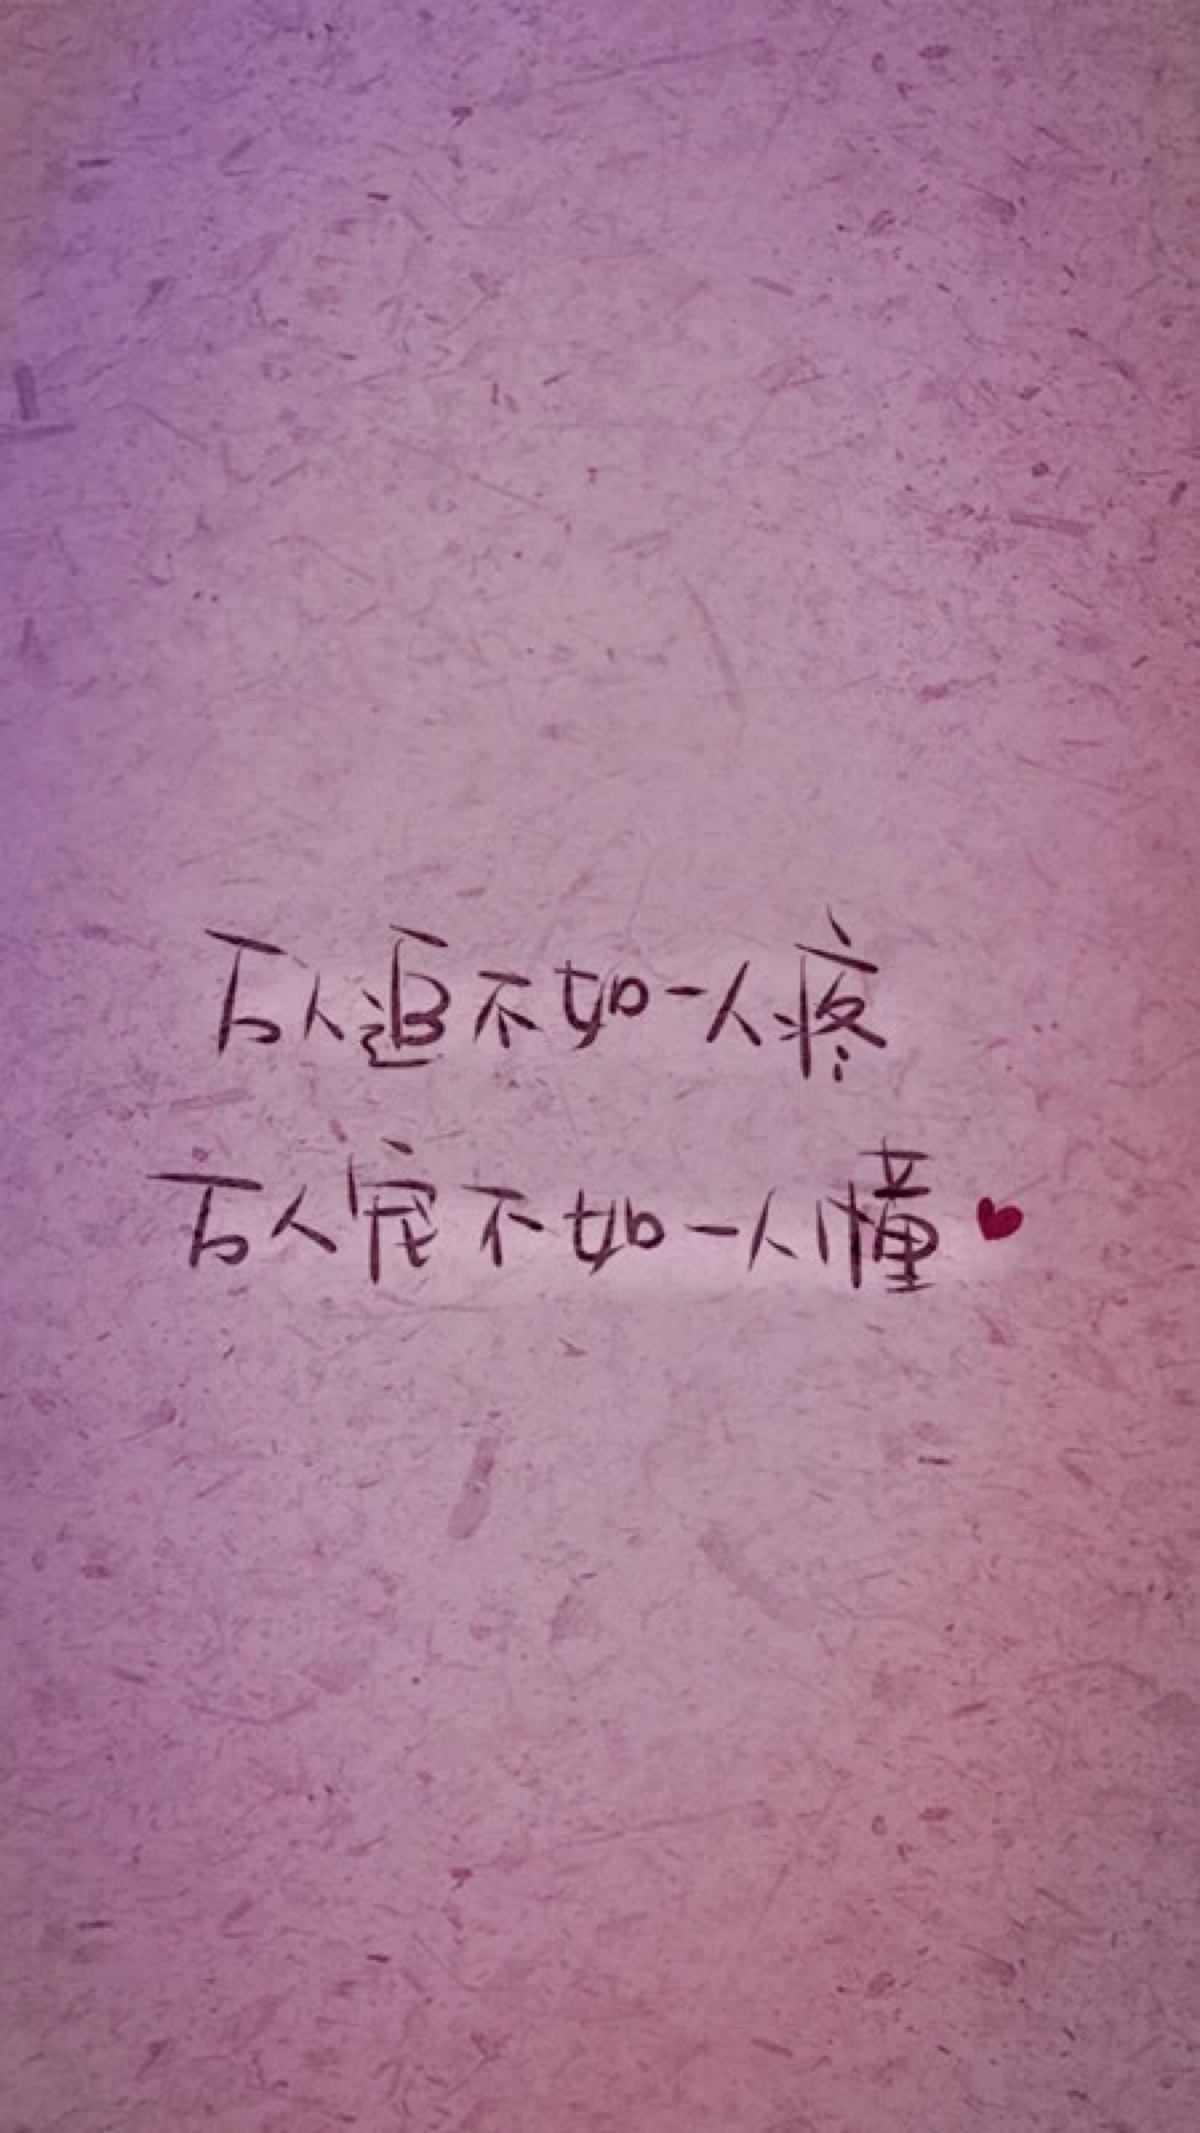 万人追不如一人疼
万人宠不如一人懂